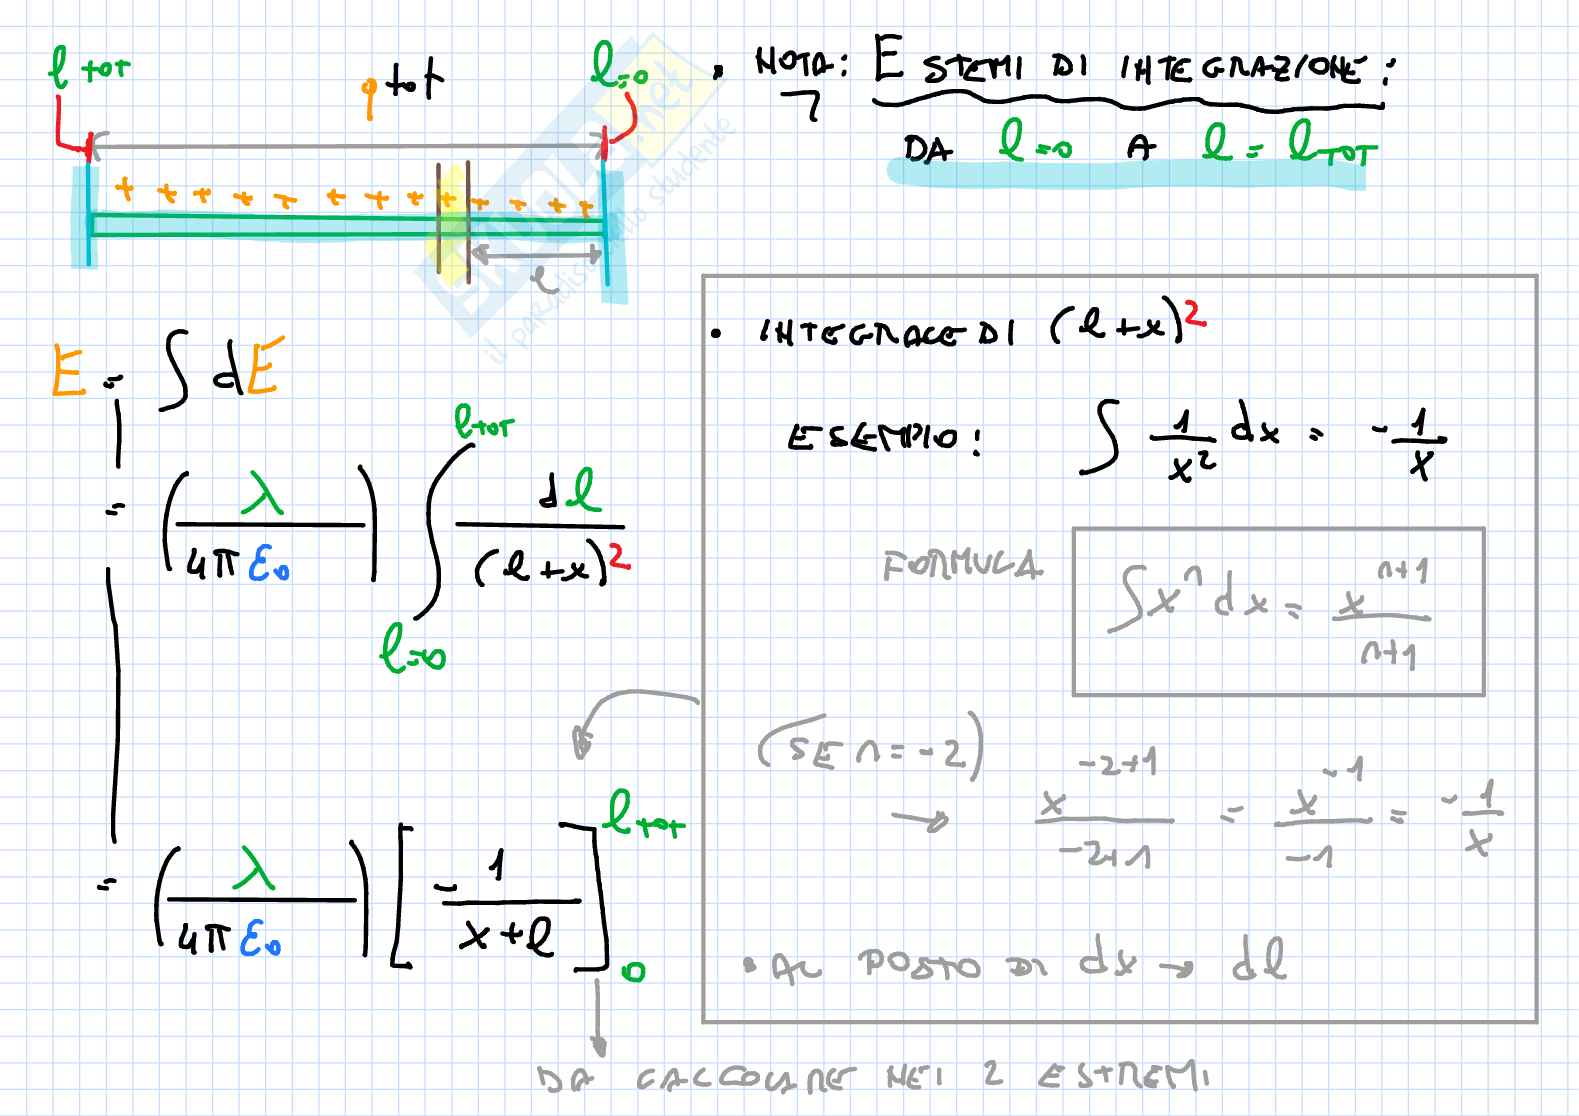 l tot
q tot
l=0
+ + + + + + + + + + + +
l
• NOTA: ESTEMI DI INTEGRAZIONE:
DA l=0 A l = l TOT
E = ∫ dE
= (λ / 4π ε₀) ∫_{l=0}^{l tot} dl / (l+x)²
= (λ / 4π ε₀) [ - 1 / x+l ]_0^{l tot}
DA CALCOLARE NEI 2 ESTREMI
• INTEGRALE DI (l+x)²
ESEMPIO: ∫ 1/x² dx = - 1/x
FORMULA ∫ xⁿ dx = x^{n+1} / n+1
(SE n = -2)
→ x^{-2+1} / -2+1 = x^{-1} / -1 = - 1/x
• AL POSTO DI dx → dl
SKUOLA.net
il paradiso dello studente